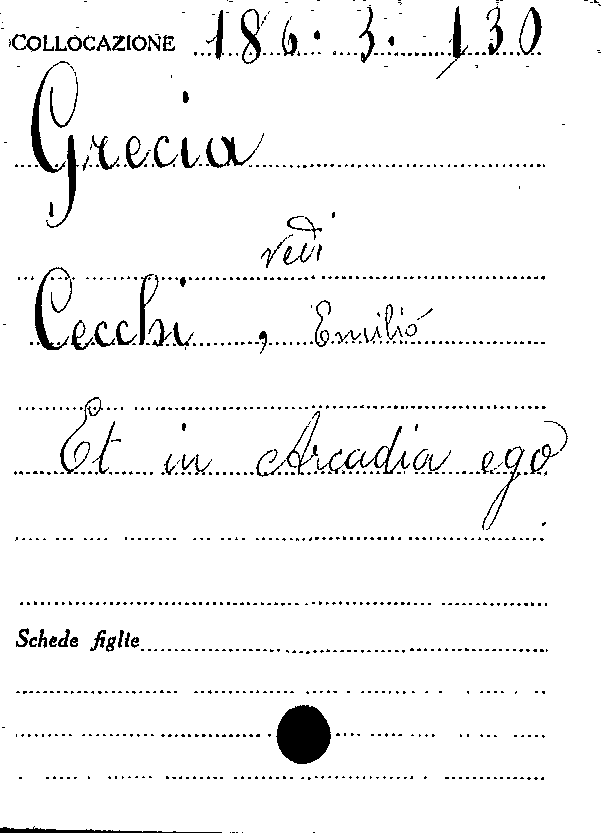 COLLOCAZIONE 186.3.130
Grecia
vedi
Cecchi, Emilio
Et in Arcadia ego
Schede figlie